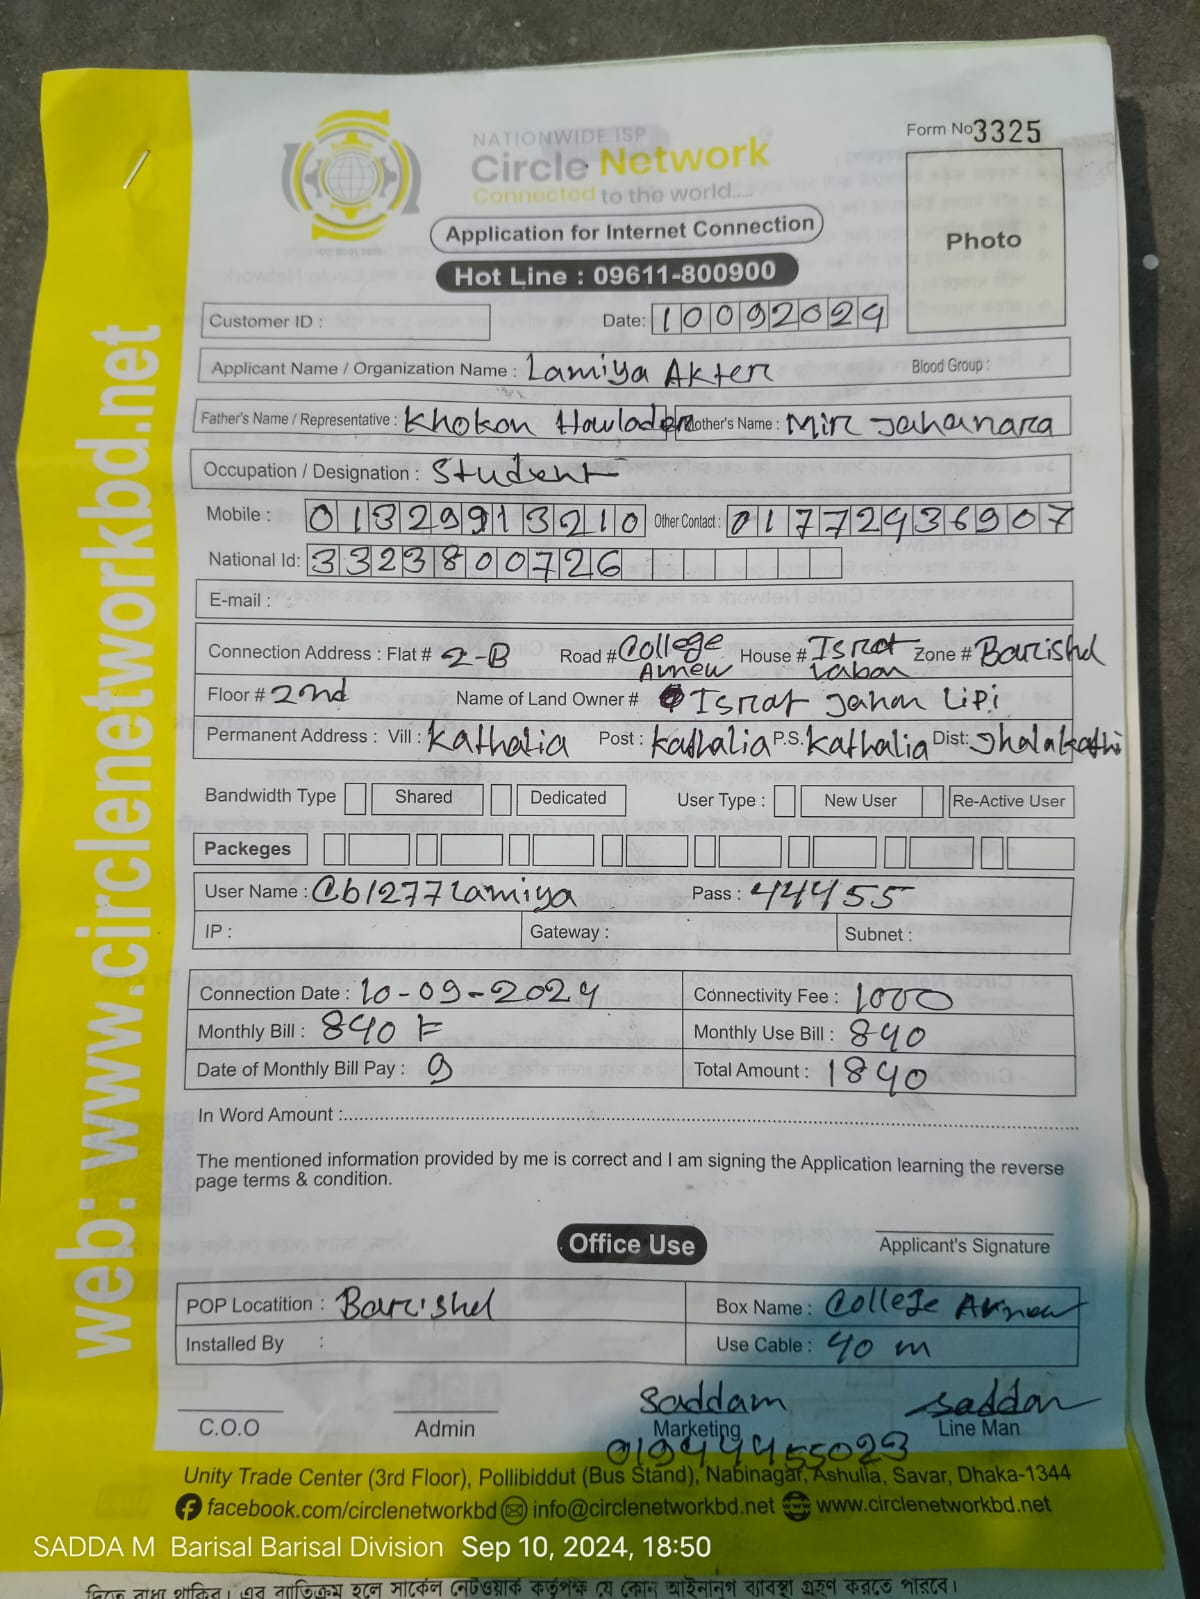 Form No 3325
NATIONWIDE ISP
Circle Network
Connected to the world.....
Application for Internet Connection
Hot Line : 09611-800900
Photo
Customer ID :
Date: 10092024
Applicant Name / Organization Name : Lamiya Akter
Blood Group :
Father's Name / Representative : Khokon Howlader Mother's Name : Mir Jahanara
Occupation / Designation : Student
Mobile : 01329913210 Other Contact : 01772936907
National Id: 3323800726
E-mail :
Connection Address : Flat # 2-B Road # College Avnew House # Israt Zone # Barishal
Floor # 2nd Name of Land Owner # Israt Jahan Lipi
Permanent Address : Vill : Kathalia Post : Kathalia P.S. Kathalia Dist: Jhalakathi
Bandwidth Type Shared Dedicated User Type : New User Re-Active User
Packeges
User Name : Cb1277Lamiya Pass : 44455
IP : Gateway : Subnet :
Connection Date : 10-09-2024 Connectivity Fee : 1000
Monthly Bill : 840 Monthly Use Bill : 840
Date of Monthly Bill Pay : 9 Total Amount : 1840
In Word Amount :
The mentioned information provided by me is correct and I am signing the Application learning the reverse
page terms & condition.
Office Use
Applicant's Signature
POP Locatition : Barishal Box Name : College Avnew
Installed By : Use Cable : 40 m
Saddam Saddam
C.O.O Admin Marketing Line Man
01944455023
Unity Trade Center (3rd Floor), Pollibiddut (Bus Stand), Nabinagar, Ashulia, Savar, Dhaka-1344
facebook.com/circlenetworkbd info@circlenetworkbd.net www.circlenetworkbd.net
web: www.circlenetworkbd.net
SADDA M Barisal Barisal Division Sep 10, 2024, 18:50
দিতে বাধ্য থাকিব। এর ব্যতিক্রম হলে সার্কেল নেটওয়ার্ক কর্তৃপক্ষ যে কোন আইনানুগ ব্যবস্থা গ্রহণ করতে পারবে।